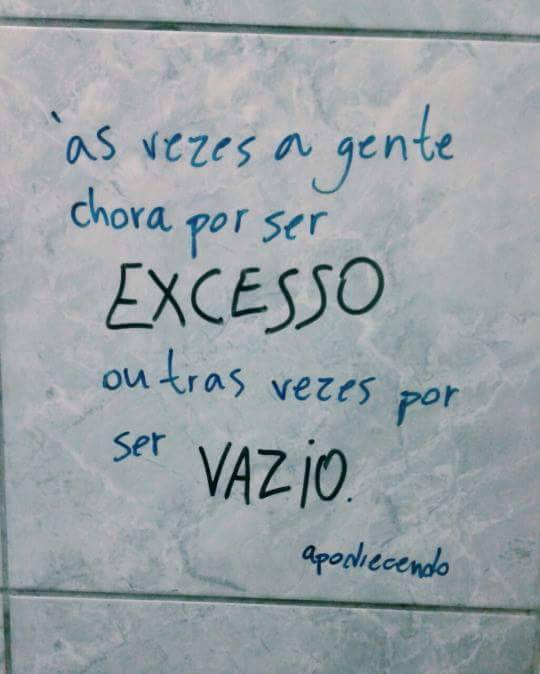 às vezes a gente
chora por ser
EXCESSO
outras vezes por
ser VAZiO.
apodiecendo